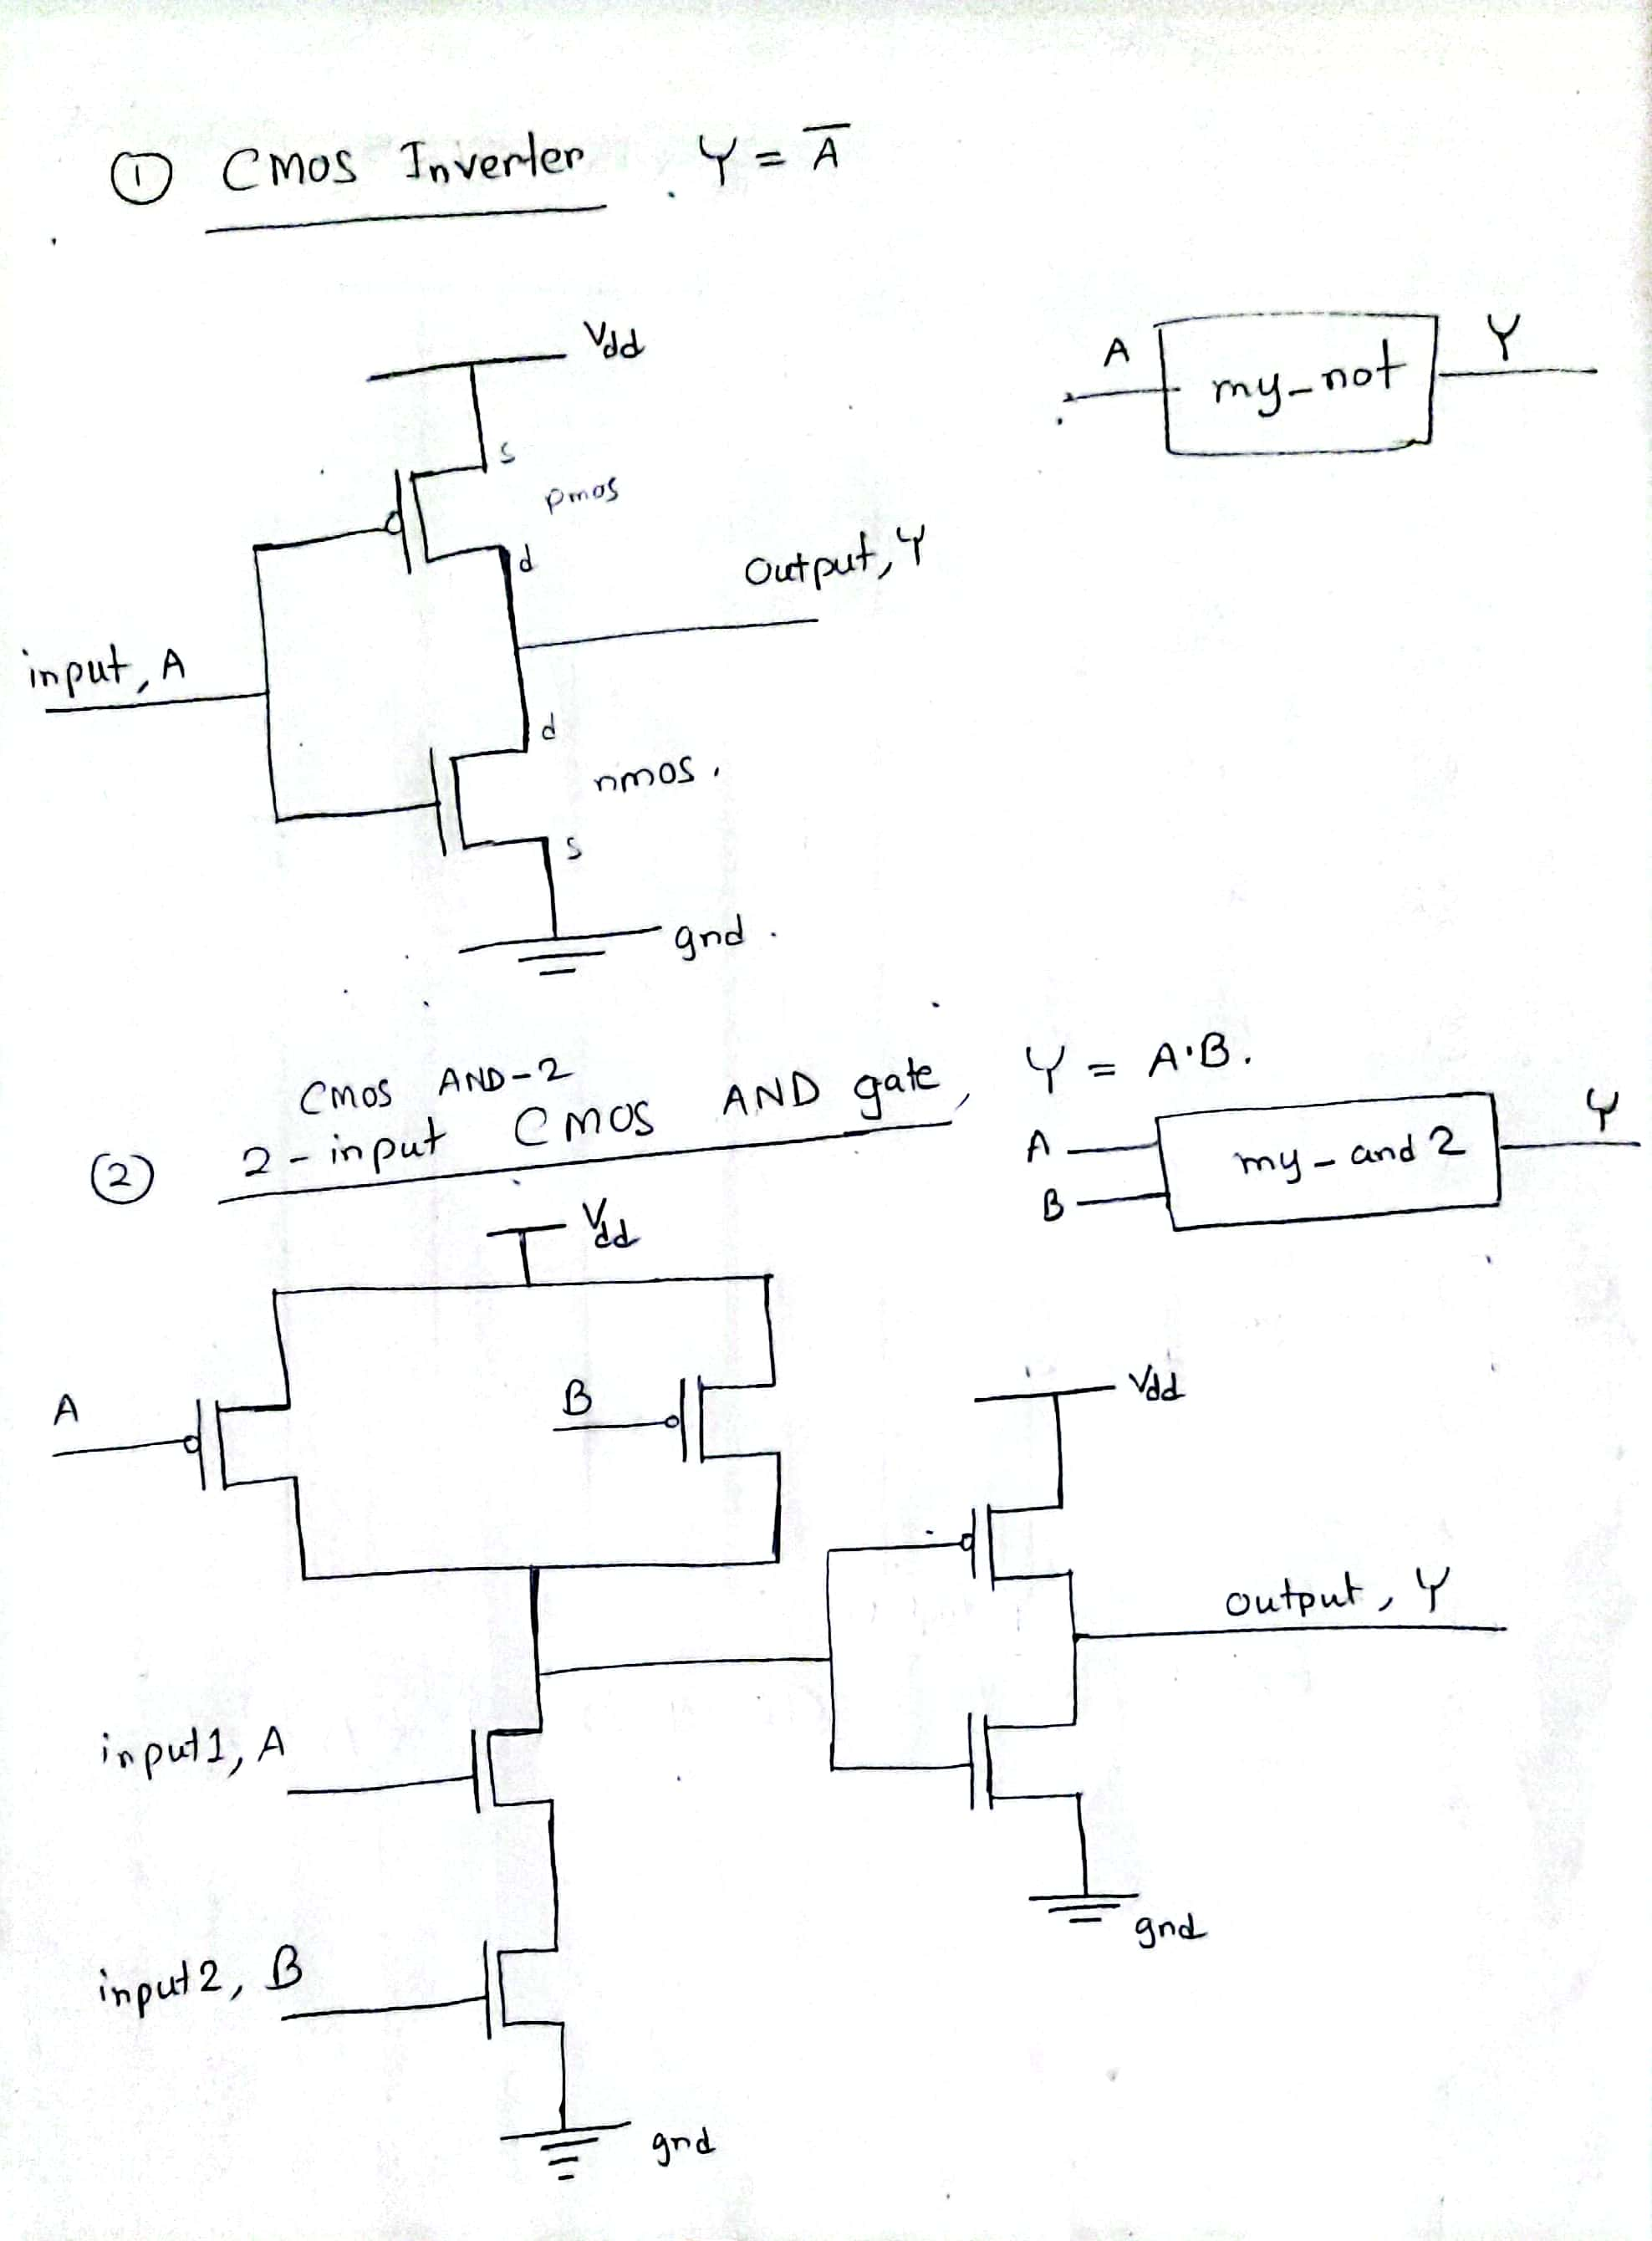 ① CMOS Inverter . Y = A̅
Vdd
s
pmos
d
A
my_not
Y
Output, Y
input, A
d
nmos.
s
gnd.
CMOS AND-2
② 2-input CMOS AND gate, Y = A·B.
A
B
my-and2
Y
Vdd
A
B
Vdd
output, Y
input1, A
input2, B
gnd
gnd